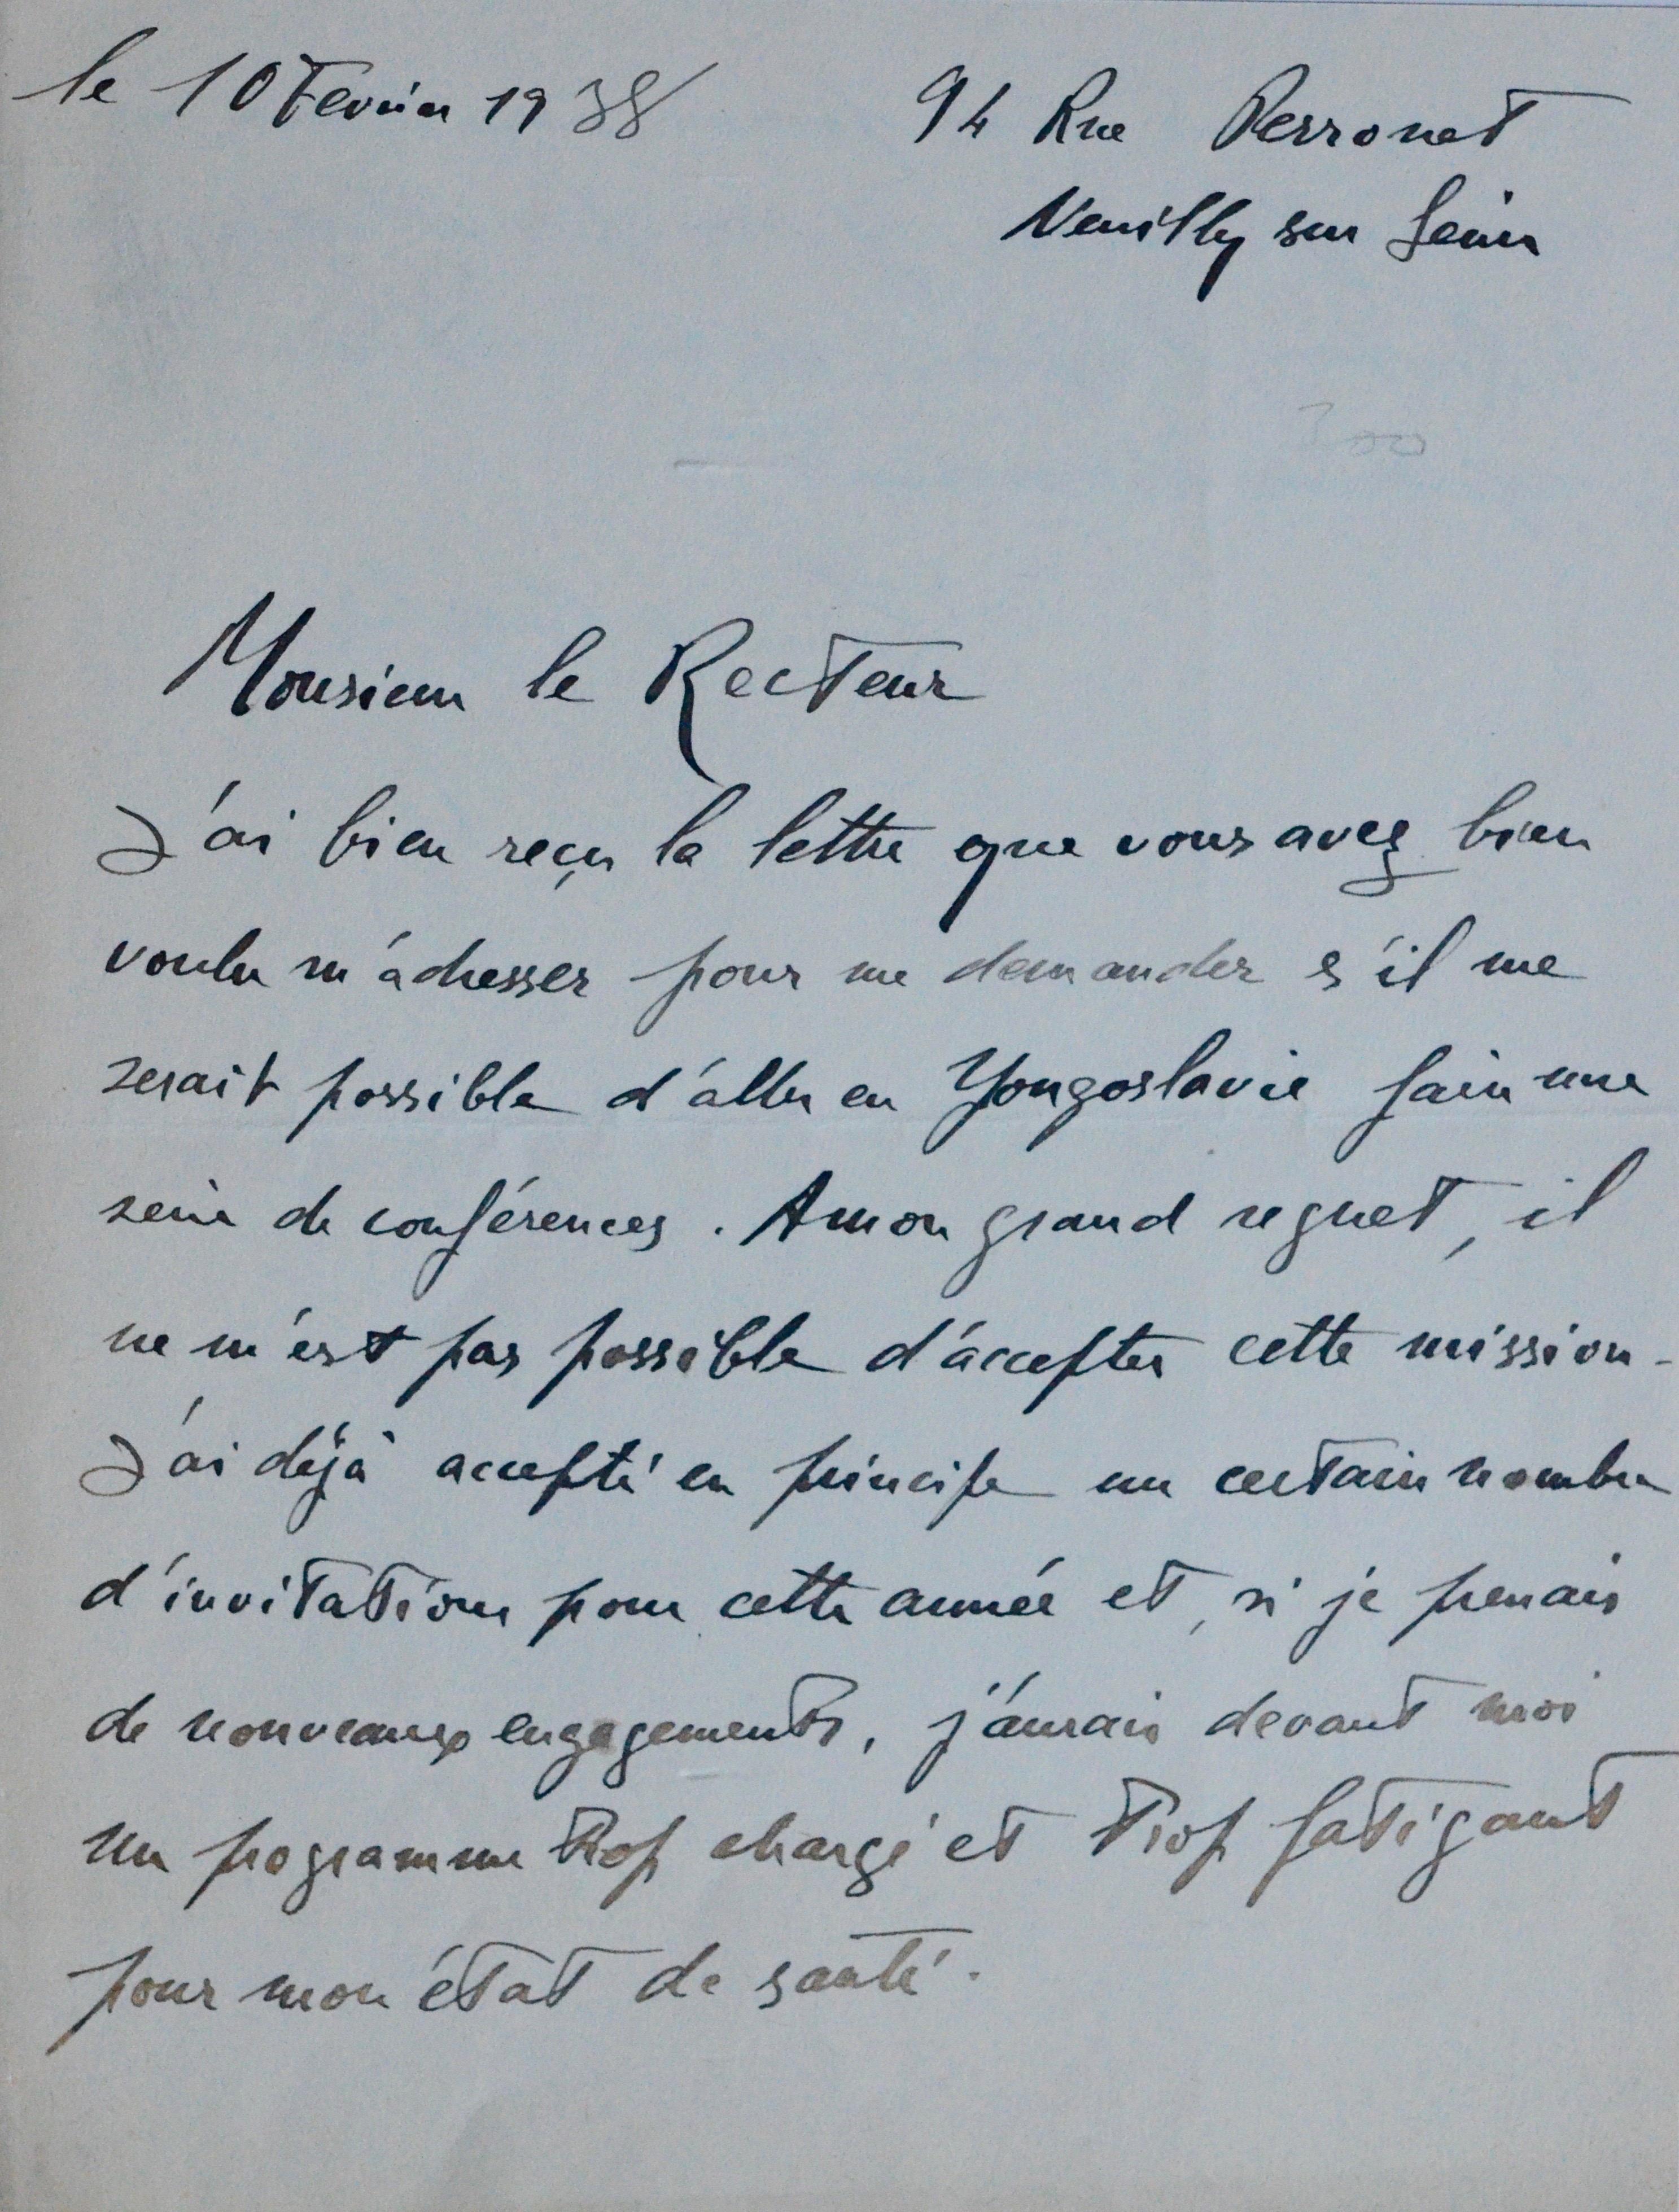 le 10 Fevrier 1938
94 Rue Perronet
Neuilly sur Seine
Monsieur le Recteur
J'ai bien reçu la lettre que vous avez bien
voulu m'adresser pour me demander s'il me
serait possible d'aller en Yougoslavie faire une
serie de conférences. A mon grand regret, il
ne m'est pas possible d'accepter cette mission.
J'ai déjà accepté en principe un certain nombre
d'invitations pour cette année et, si je prenais
de nouveaux engagements, j'aurais devant moi
un programme trop chargé et trop fatigant
pour mon état de santé.